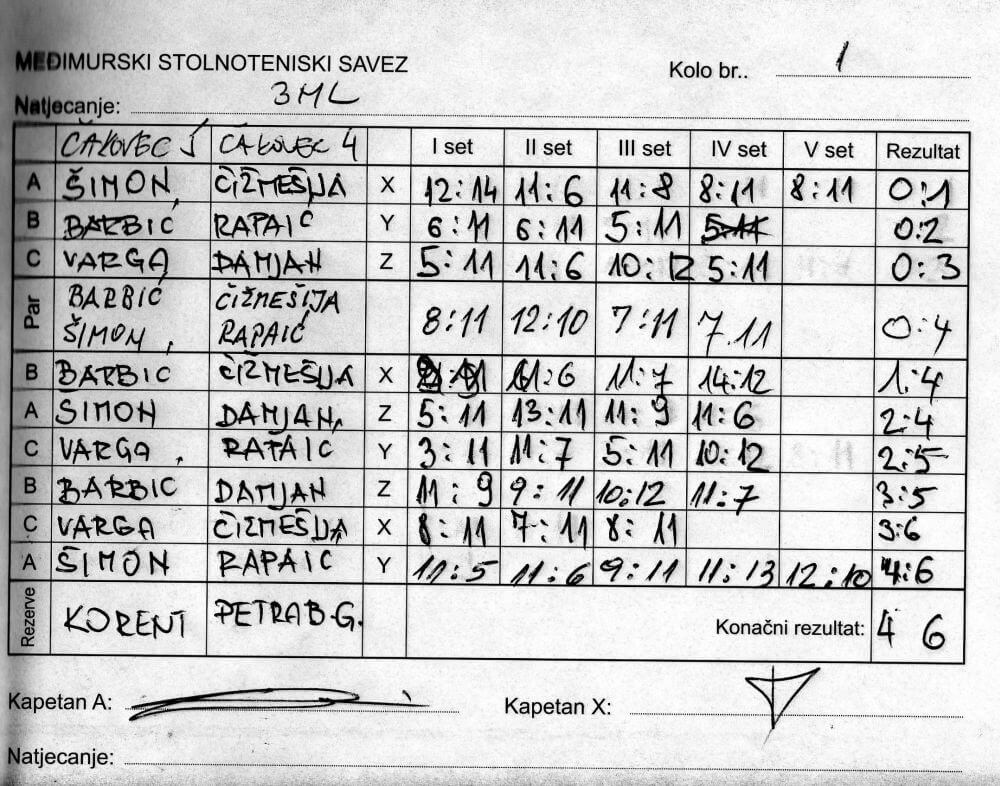 MEĐIMURSKI STOLNOTENISKI SAVEZ
Kolo br.. 1
Natjecanje: 3ML
ČAKOVEC 5 ČAKOVEC 4 I set II set III set IV set V set Rezultat
A ŠIMON, ČIŽMEŠIJA X 12:14 11:6 11:8 8:11 8:11 0:1
B BARBIĆ RAPAIĆ Y 6:11 6:11 5:11 5:11 0:2
C VARGA, DAMJAN Z 5:11 11:6 10:12 5:11 0:3
Par BARBIĆ ČIŽMEŠIJA
ŠIMON, RAPAIĆ 8:11 12:10 7:11 7.11 0:4
B BARBIC ČIŽMEŠIJA X 11:6 11:7 14:12 1:4
A SIMON DAMJAN, Z 5:11 13:11 11:9 11:6 2:4
C VARGA, RAPAIC Y 3:11 11:7 5:11 10:12 2:5
B BARBIC DAMJAN Z 11:9 9:11 10:12 11:7 3:5
C VARGA ČIZMEŠIJA X 8:11 7:11 8:11 3:6
A ŠIMON RAPAIC Y 11:5 11:6 9:11 11:13 12:10 4:6
Rezerve KORENT PETRAB.G. Konačni rezultat: 4 6
Kapetan A: Kapetan X:
Natjecanje: